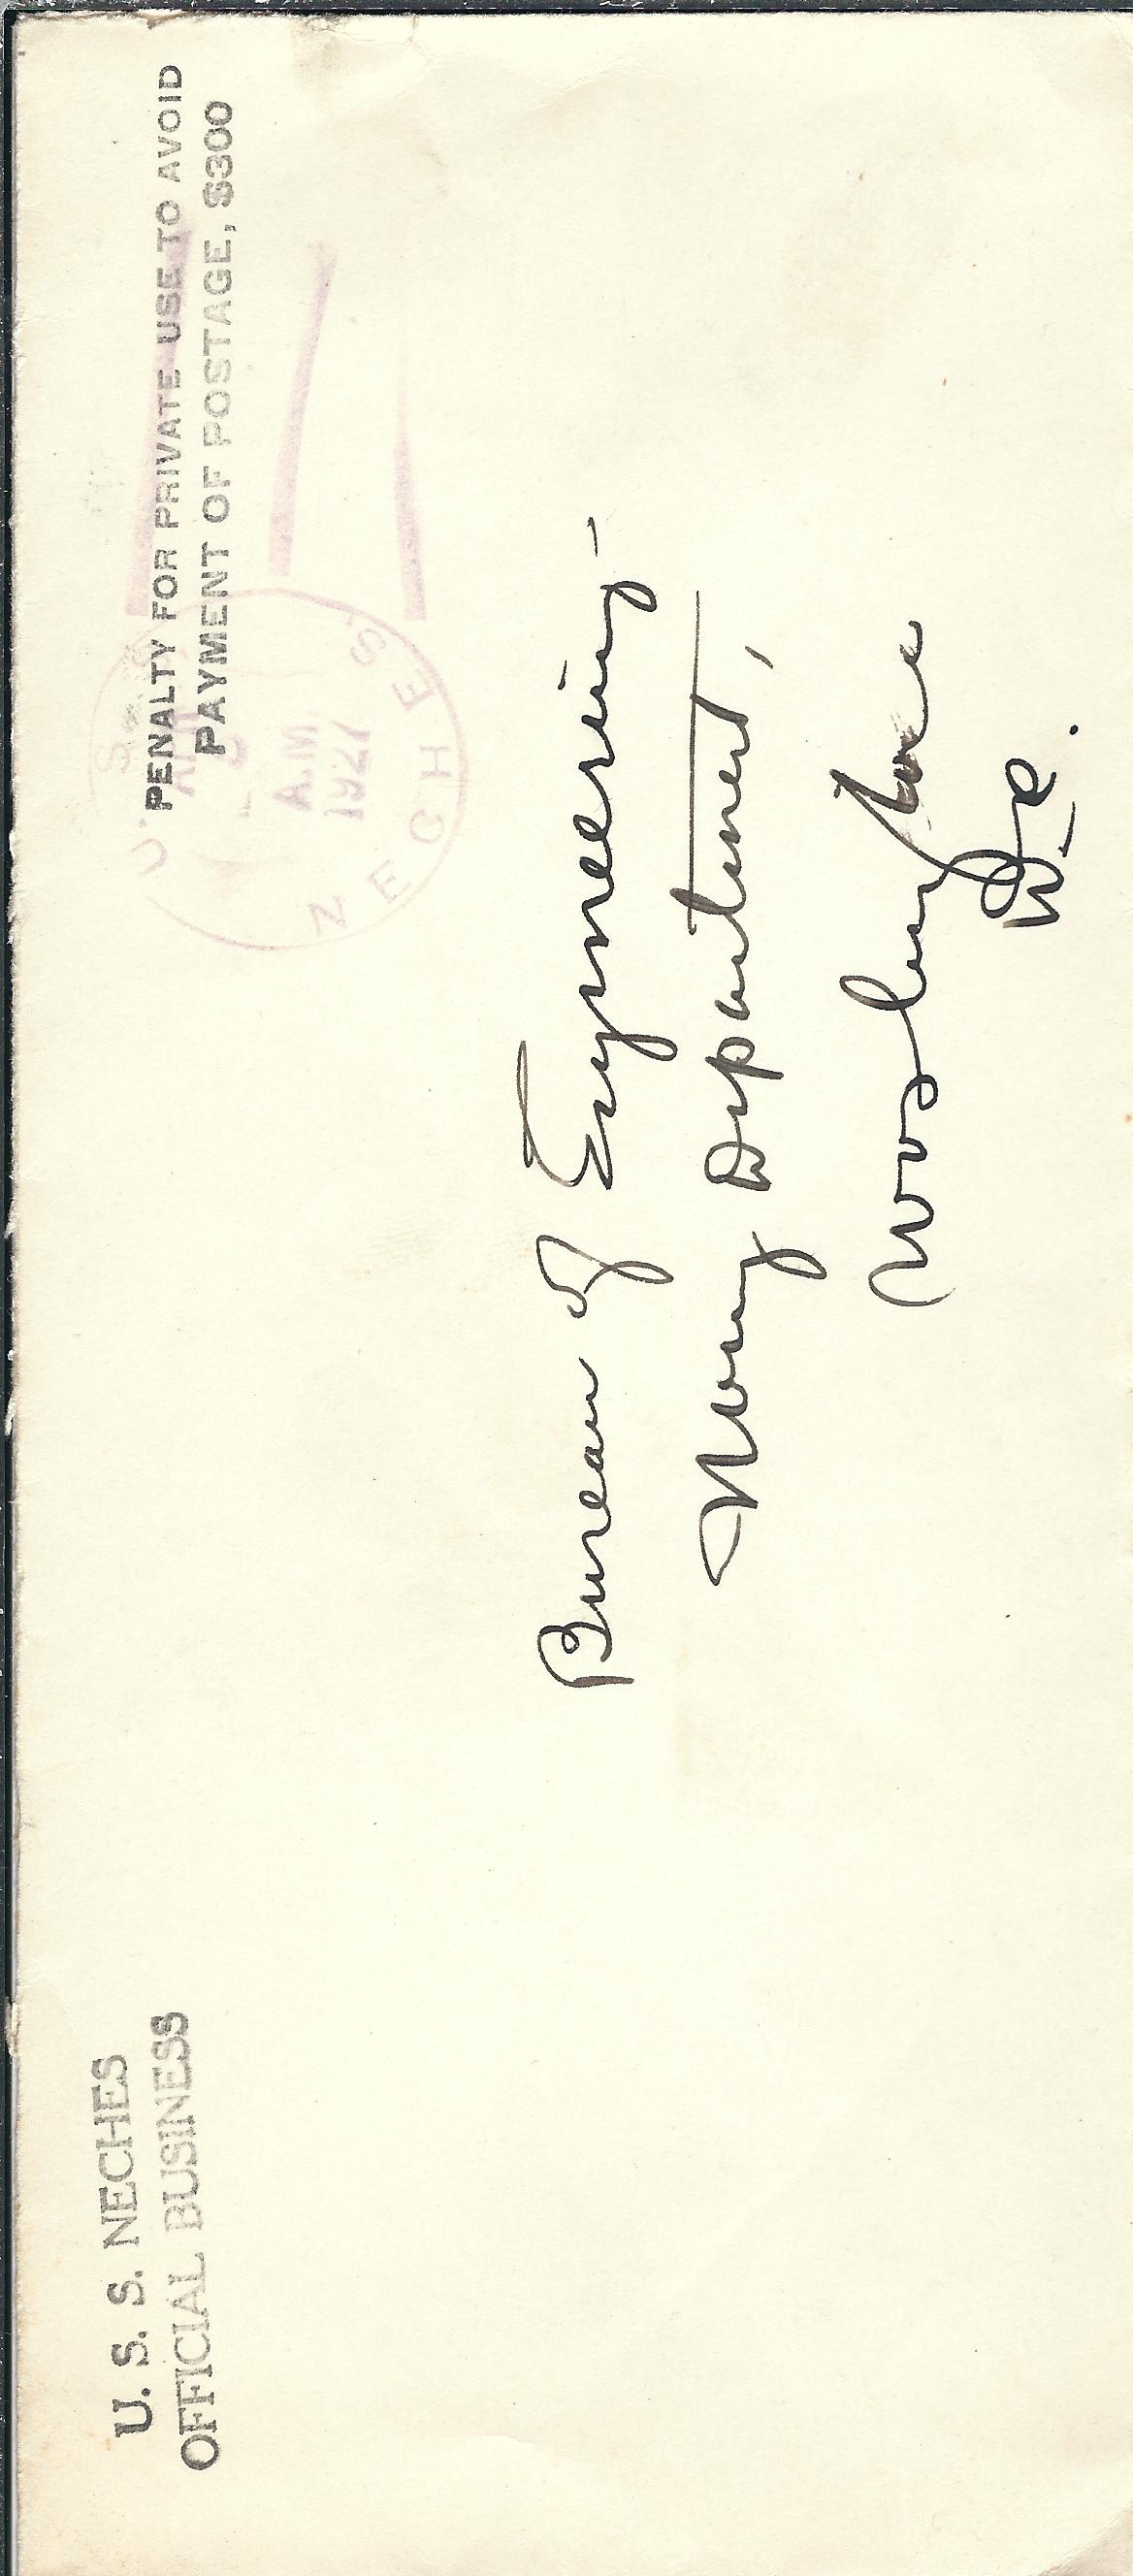 U. S. S. NECHES
OFFICIAL BUSINESS
PENALTY FOR PRIVATE USE TO AVOID
PAYMENT OF POSTAGE, $300
U. S. S.
A.M
1927
NECHES
Bureau of Engineering -
Navy Department,
Washington
D.C.